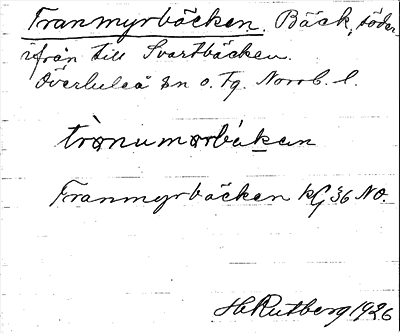 Tranmyrbäcken. Bäck, söder-
ifrån till Svartbäcken.
Överluleå sn o. Tg. Norrb. l.
trànumørbákan
Tranmyrbäcken kG 36 NO.
H Rutberg 1926